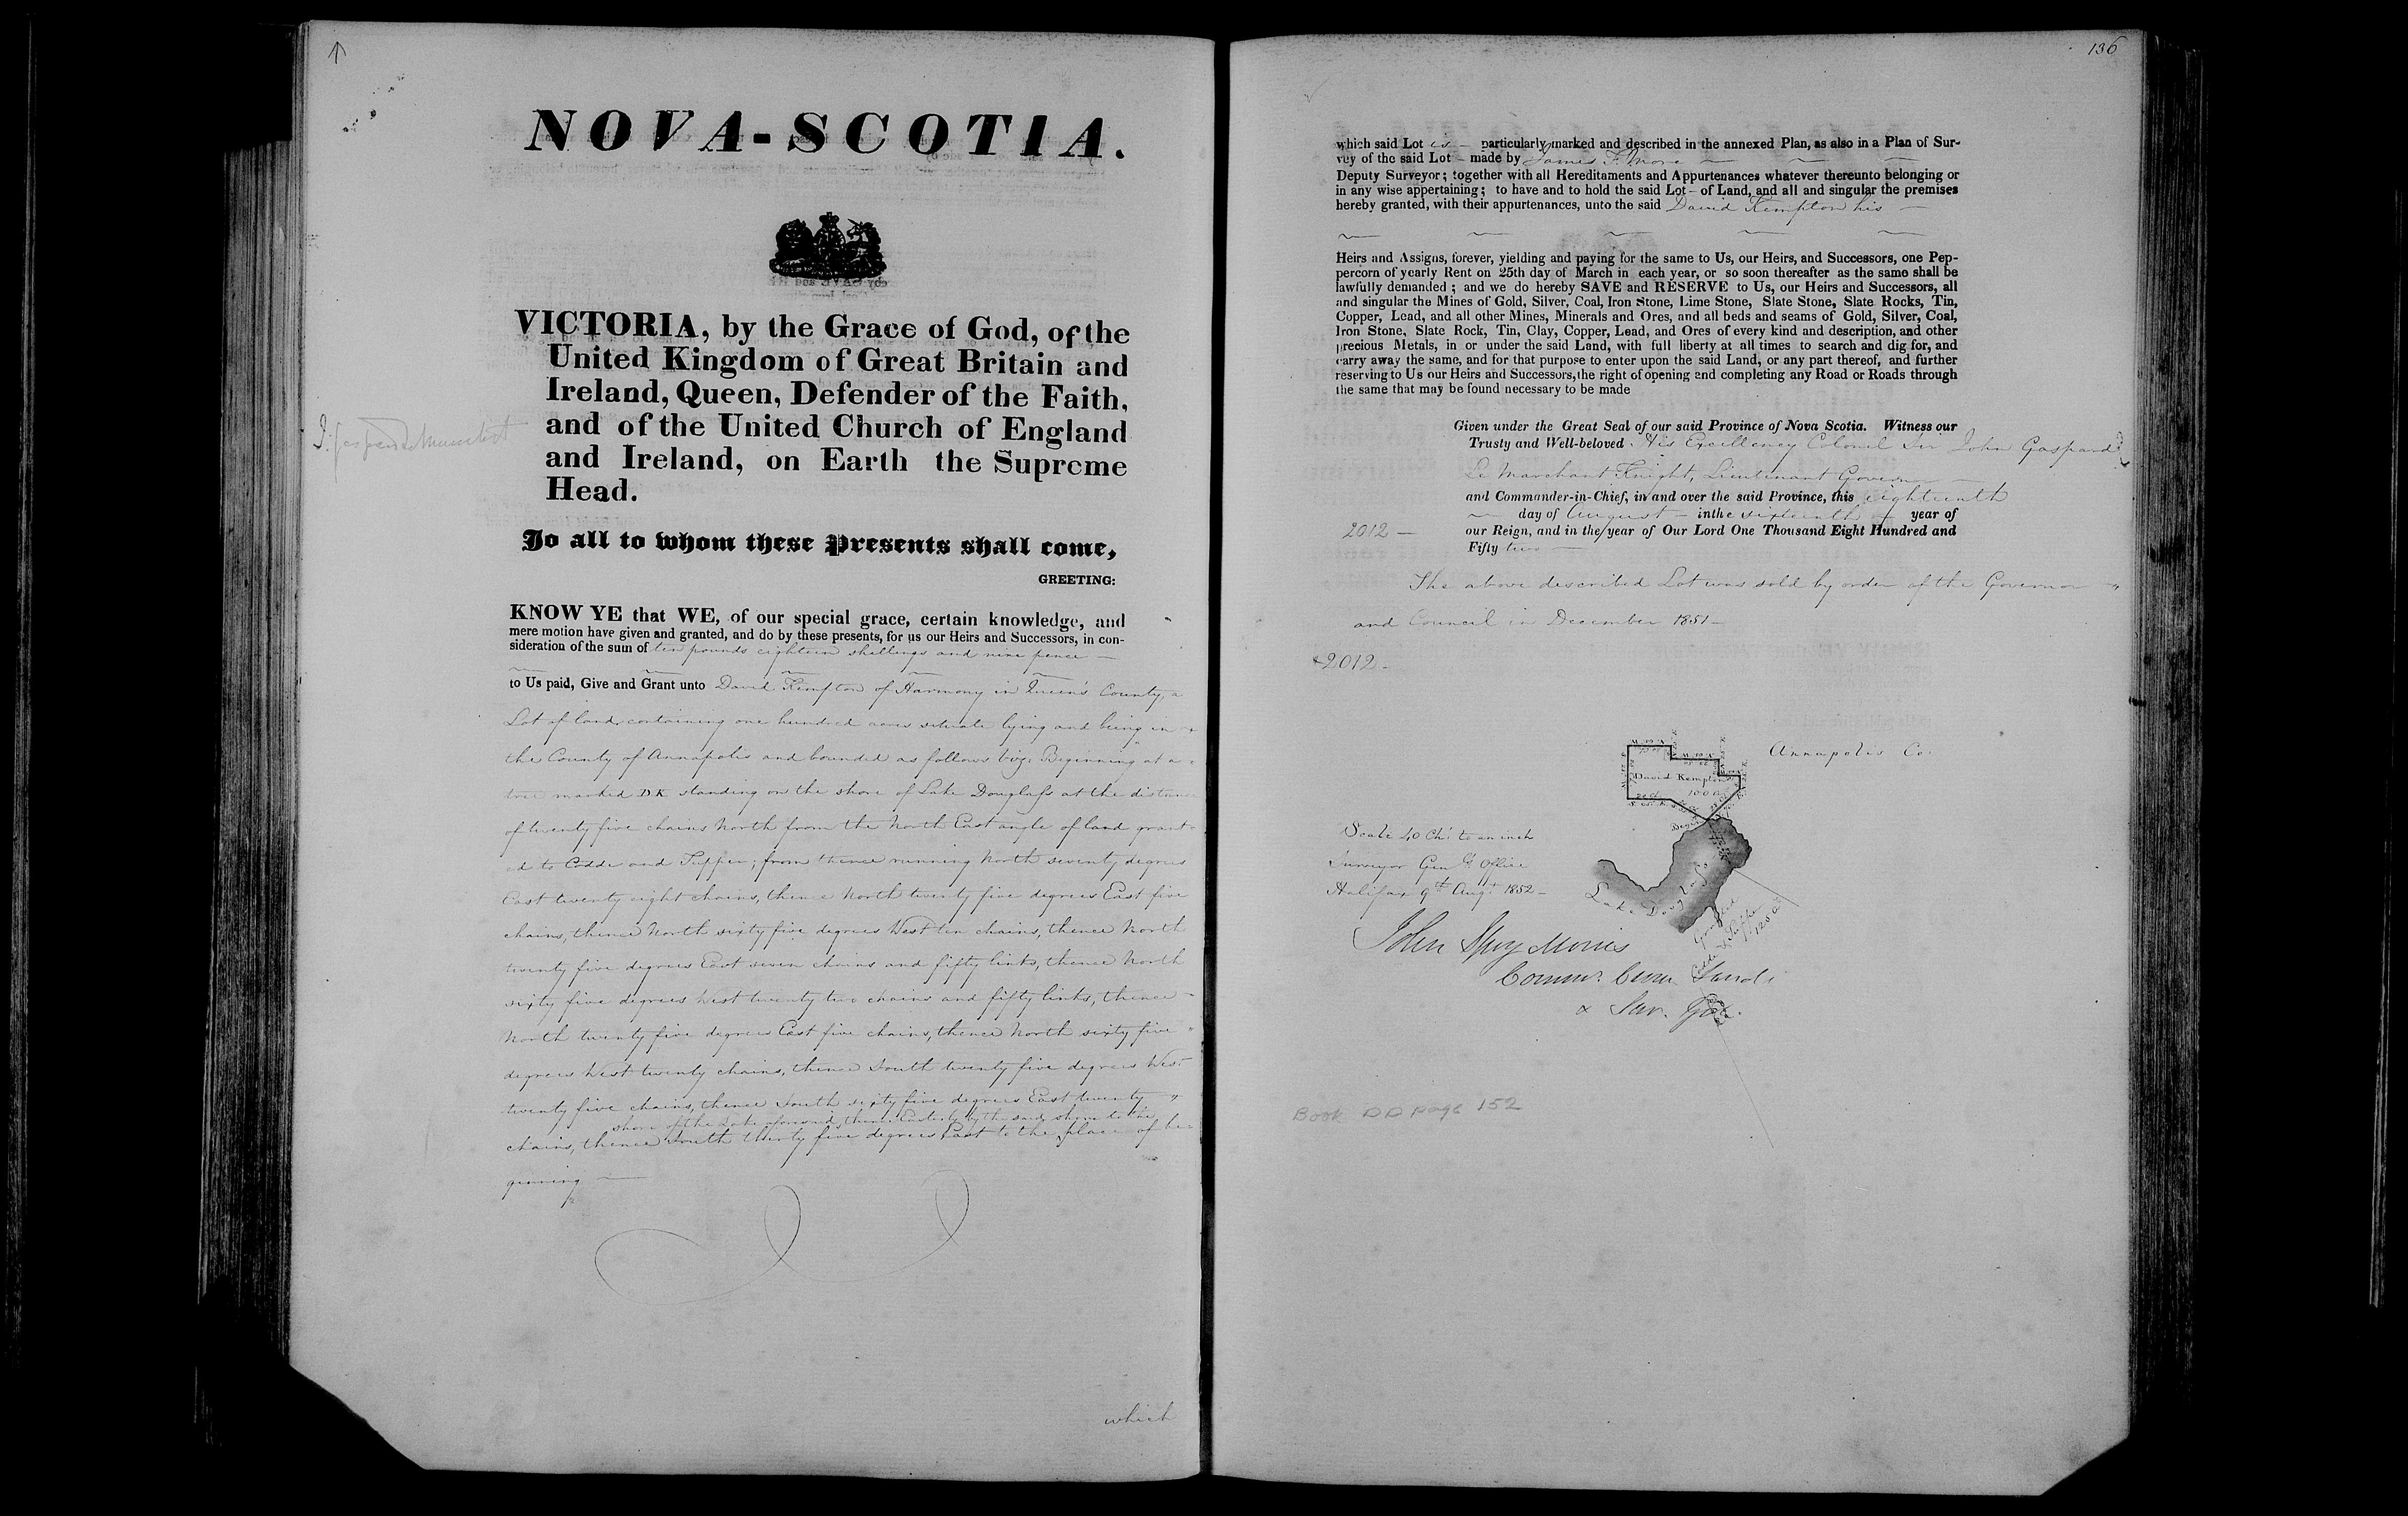 NOVA-SCOTIA.
VICTORIA, by the Grace of God, of the
United Kingdom of Great Britain and
Ireland, Queen, Defender of the Faith,
and of the United Church of England
and Ireland, on Earth the Supreme
Head.
To all to whom these Presents shall come,
GREETING:
KNOW YE that WE, of our special grace, certain knowledge, and
mere motion have given and granted, and do by these presents, for us our Heirs and Successors, in con-
sideration of the sum of ten pounds eighteen shillings and nine pence —
to Us paid, Give and Grant unto David Kempton of Harmony in Queen's County, a
Lot of land containing one hundred acres situate lying and being in
the County of Annapolis and bounded as follows viz. Beginning at a
tree marked DK standing on the shore of Lake Douglass at the distance
of twenty five chains North from the North East angle of land grant-
ed to Codde and Tupper; from thence running North seventy degrees
East twenty eight chains, thence North twenty five degrees East five
chains, thence North sixty five degrees West ten chains, thence North
twenty five degrees East seven chains and fifty links, thence North
sixty five degrees West twenty two chains and fifty links, thence
North twenty five degrees East five chains, thence North sixty five
degrees West twenty chains, thence South twenty five degrees West
twenty five chains, thence South sixty five degrees East twenty
shore of the Lake aforesaid, thence Easterly by the said shore to the
chains, thence South thirty five degrees East to the place of be-
ginning —
which
136
which said Lot is - particularly marked and described in the annexed Plan, as also in a Plan of Sur-
vey of the said Lot - made by James F. More
Deputy Surveyor; together with all Hereditaments and Appurtenances whatever thereunto belonging or
in any wise appertaining; to have and to hold the said Lot - of Land, and all and singular the premises
hereby granted, with their appurtenances, unto the said David Kempton his —
Heirs and Assigns, forever, yielding and paying for the same to Us, our Heirs, and Successors, one Pep-
percorn of yearly Rent on 25th day of March in each year, or so soon thereafter as the same shall be
lawfully demanded; and we do hereby SAVE and RESERVE to Us, our Heirs and Successors, all
and singular the Mines of Gold, Silver, Coal, Iron Stone, Lime Stone, Slate Stone, Slate Rocks, Tin,
Copper, Lead, and all other Mines, Minerals and Ores, and all beds and seams of Gold, Silver, Coal,
Iron Stone, Slate Rock, Tin, Clay, Copper, Lead, and Ores of every kind and description, and other
precious Metals, in or under the said Land, with full liberty at all times to search and dig for, and
carry away the same, and for that purpose to enter upon the said Land, or any part thereof, and further
reserving to Us our Heirs and Successors, the right of opening and completing any Road or Roads through
the same that may be found necessary to be made
Given under the Great Seal of our said Province of Nova Scotia. Witness our
Trusty and Well-beloved His Excellency Colonel Sir John Gaspard
Le Marchant Knight, Lieutenant Governor
and Commander-in-Chief, in and over the said Province, this eighteenth
day of August - in the sixteenth - year of
2012 - our Reign, and in the year of Our Lord One Thousand Eight Hundred and
Fifty two —
The above described Lot was sold by order of the Governor
and Council in December 1851 -
2012 -
Annapolis Co.
David Kempton
100 a
20 ch
Lake Douglass
Granted
Codde & Tupper
Scale 40 Chs. to an inch
Surveyor Genls. Office
Halifax 9th Augt. 1852 -
John Spry Morris
Commr. Crown Lands
& Sur. Gen.
Book DD page 152